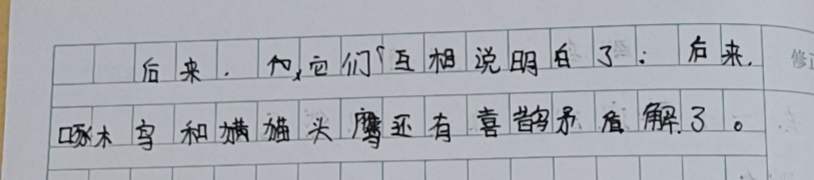 后来，它们互相说明白了：后来，
啄木鸟和猫头鹰还有喜鹊矛盾解了。